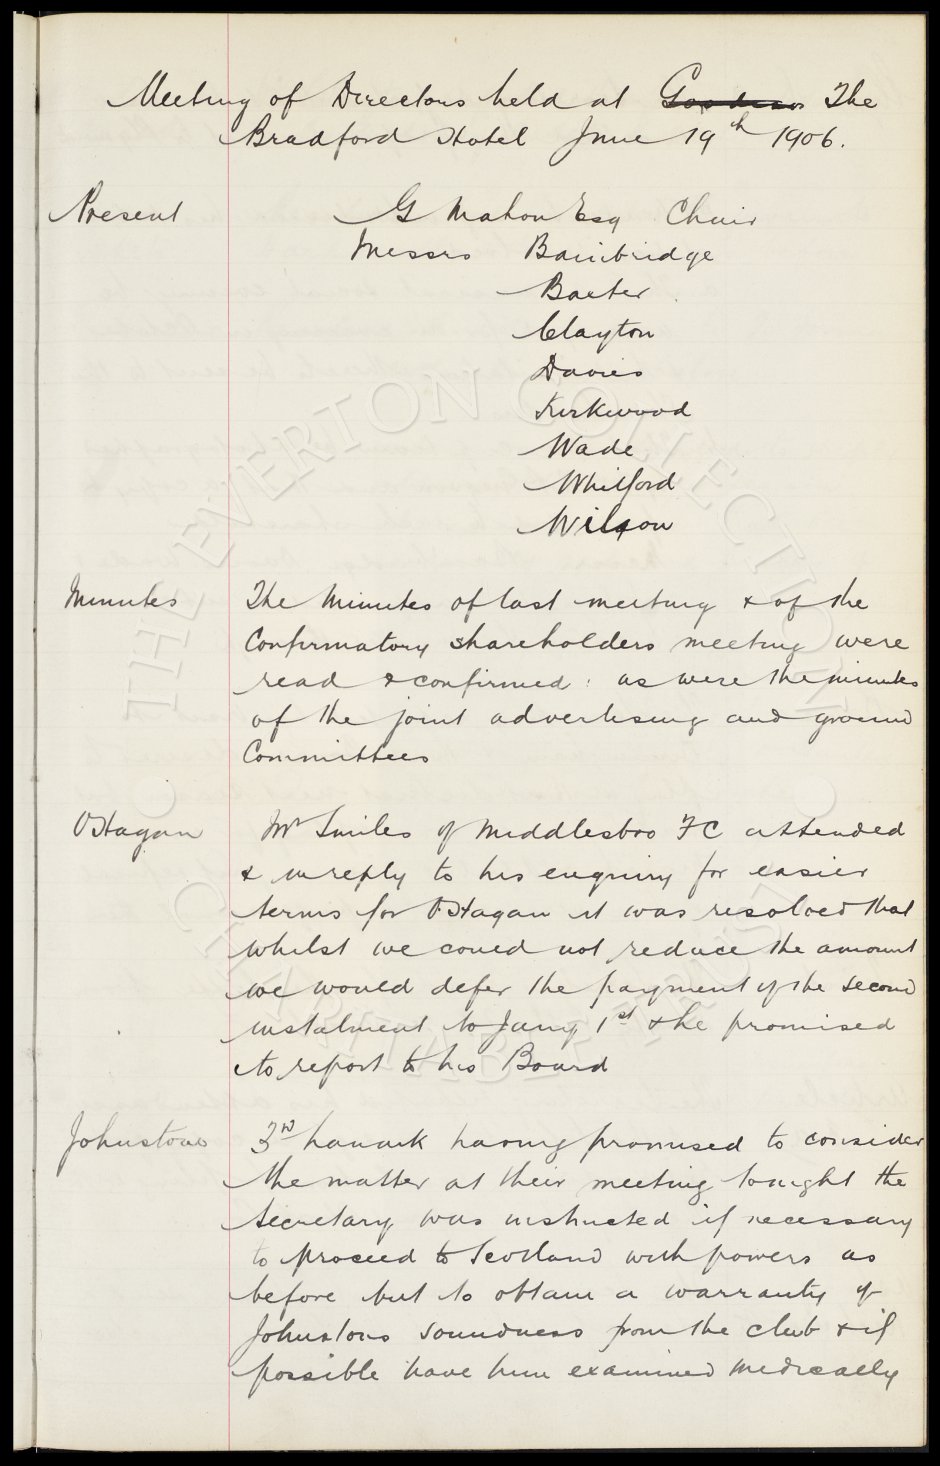 Meeting of Directors held at Goodison The
Bradford Hotel June 19th 1906.
Present G Mahon Esq Chair
Messrs Bainbridge
Baxter
Clayton
Davies
Kirkwood
Wade
Whitford
Wilson
Minutes The Minutes of last meeting & of the
Confirmatory shareholders meeting were
read & confirmed: as were the minutes
of the joint advertising and ground
Committees
O'Hagan Mr Smiles of Middlesbro FC attended
& in reply to his enquiry for easier
terms for O'Hagan it was resolved that
whilst we could not reduce the amount
we would defer the payment of the second
instalment to Jany 1st & he promised
to report to his Board
Johnstone 3rd Lanark having promised to consider
the matter at their meeting tonight the
Secretary was instructed if necessary
to proceed to Scotland with powers as
before but to obtain a warranty of
Johnstons soundness from the club & if
possible have him examined medically
THE EVERTON COLLECTION CHARITABLE TRUST